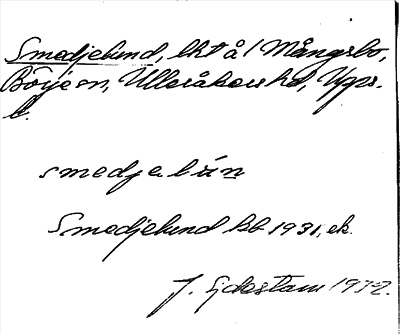 Smedjelund, lht å l Mångsbo,
Börje sn, Ulleråkers hd, Upps.
l.
smedjalún
Smedjelund kb 1931, ek.
J. Eydestam 1932.